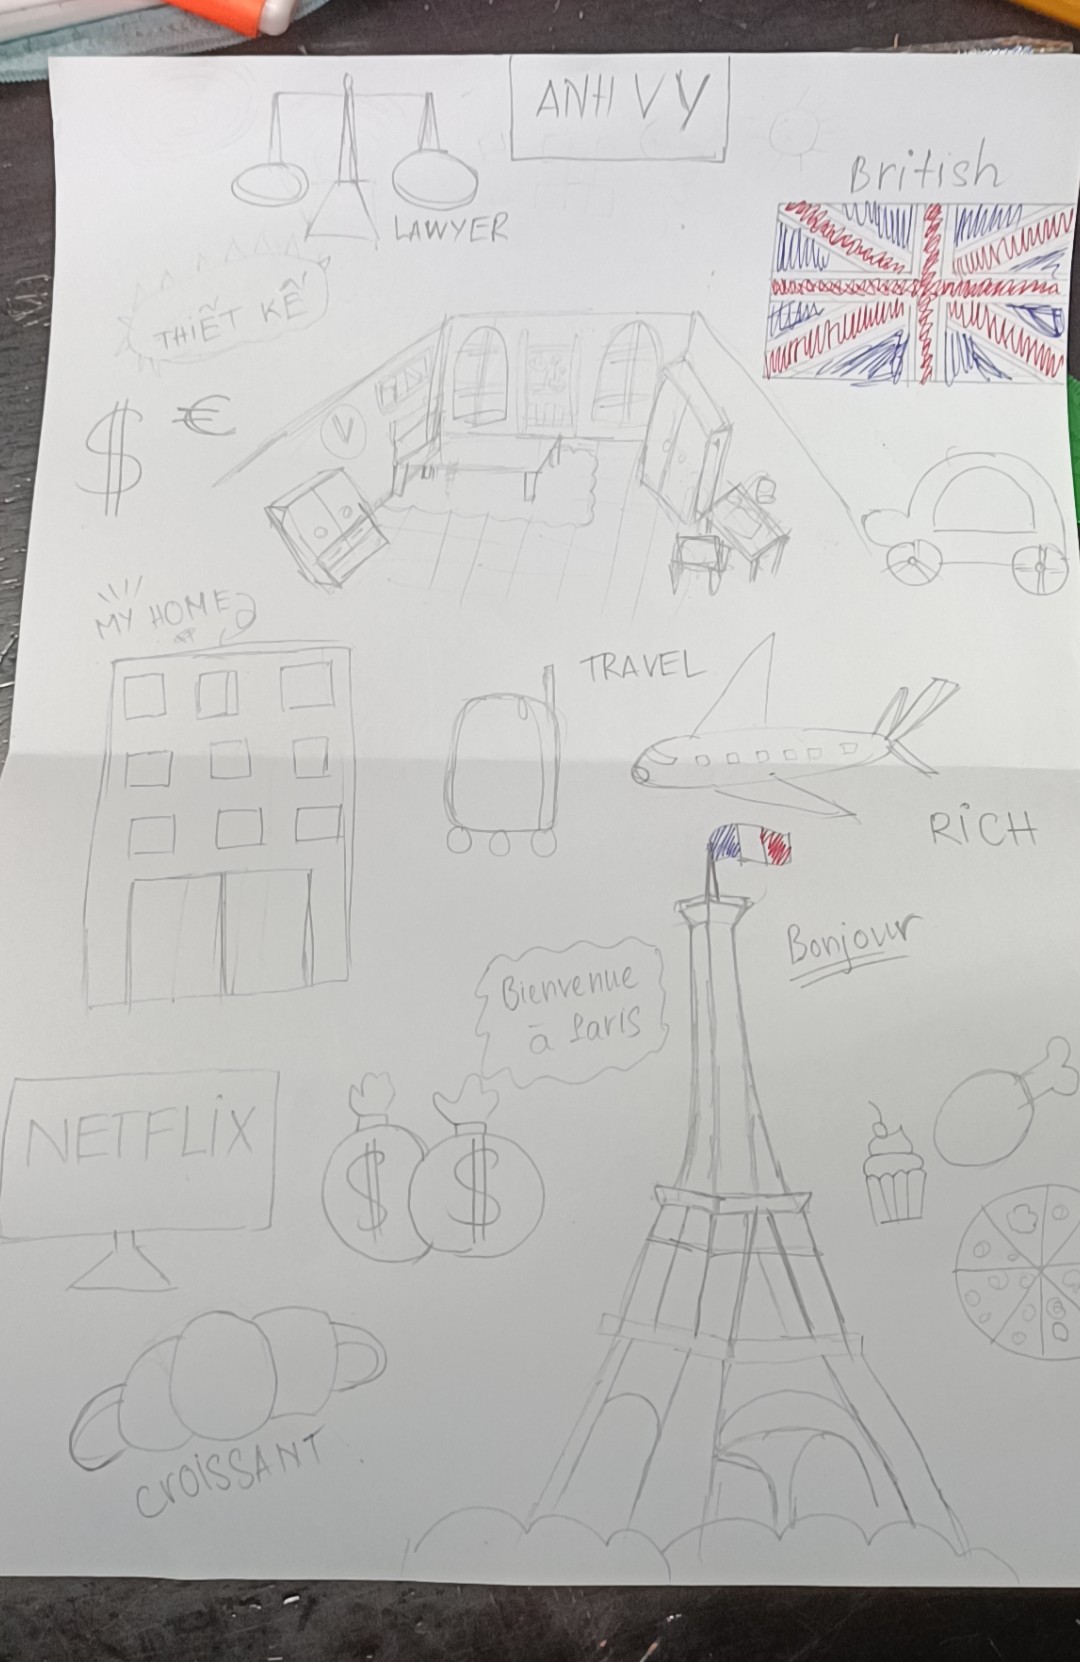 ANH VY
British
LAWYER
THIẾT KẾ
$ €
MY HOME
TRAVEL
RiCH
Bonjour
Bienvenue
à Paris
NETFLiX
$ $
CROiSSANT